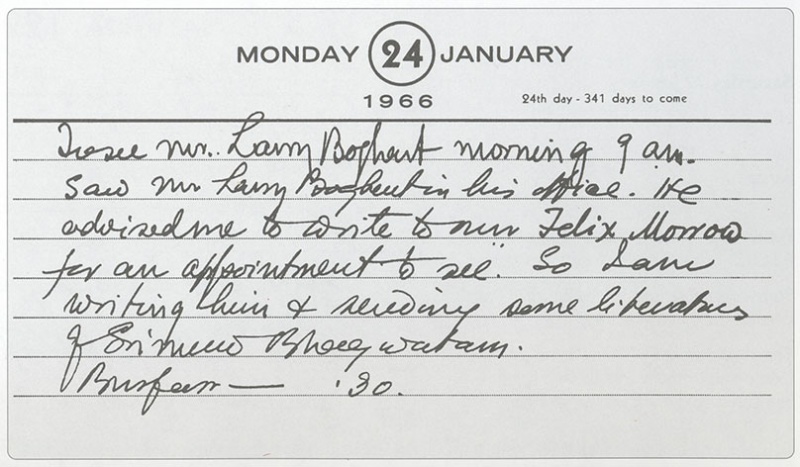 MONDAY 24 JANUARY
1966 24th day - 341 days to come
To see Mr. Larry Boghart morning 9 am.
Saw Mr Larry Boghart in his office. He
advised me to write to Mr Felix Morrow
for an appointment to see. So I am
writing him & sending some literatures
of Srimad Bhagwatam.
Busfare — .30.